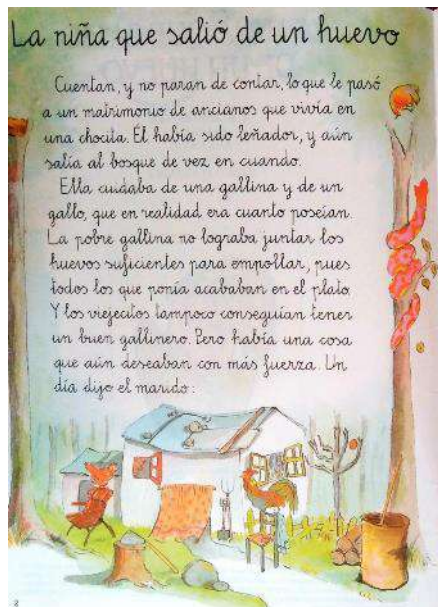 La niña que salió de un huevo
Cuentan, y no paran de contar, lo que le pasó
a un matrimonio de ancianos que vivía en
una chocita. Él había sido leñador, y aún
salía al bosque de vez en cuando.
Ella cuidaba de una gallina y de un
gallo, que en realidad era cuanto poseían.
La pobre gallina no lograba juntar los
huevos suficientes para empollar, pues
todos los que ponía acababan en el plato.
Y los viejecitos tampoco conseguían tener
un buen gallinero. Pero había una cosa
que aún deseaban con más fuerza. Un
día dijo el marido:
8